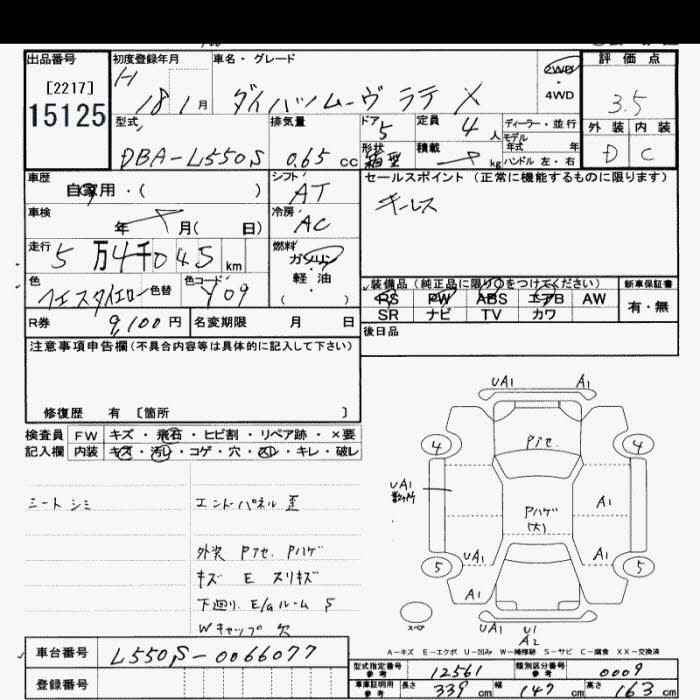 出品番号
[2217]
15125
初度登録年月
H
18 1 月
車名・グレード
ダイハツムーヴ ラテ X
2WD
・
4WD
評価点
3.5
外装 内装
D C
型式
DBA-L550S
排気量
0.65 cc
ドア 5
形状 箱型
定員 4 人
積載 kg
ディーラー・並行
モデル
年式 年
ハンドル 左・右
車歴
自家用・( )
シフト
AT
セールスポイント(正常に機能するものに限ります)
キーレス
車検
年 月( 日)
冷房
AC
走行
5 万 4 千 0 4 5 km
燃料
ガソリン
・
軽油
( )
色
色替
色コード
Y09
装備品(純正品に限り○をつけてください)
新車保証書
RS PW ABS エアB AW
SR ナビ TV カワ
有・無
R券
9,100 円
名変期限 月 日
後日品
注意事項申告欄(不具合内容等は具体的に記入して下さい)
修復歴 有 〔箇所 〕
検査員 FW キズ・飛石・ヒビ割・リペア跡・×要
記入欄 内装 キズ・汚レ・コゲ・穴・スレ・キレ・破レ
シート シミ
エンドパネル 歪
外装 Pアセ. Pハゲ
キズ E スリキズ
下廻り. E/gルーム S
Wキャップ 欠
UA1 A1
4 4
Pアセ
UA1
Pハゲ
(大)
A1
UA1 A1
5 5
A1
スペア
UA1 U1
A2
A-キズ E-エクボ U-凹み W-補修跡 S-サビ C-腐食 XX-交換済
車台番号
L550S-0066077
登録番号
型式指定番号
参考
12561
類別区分番号
参考
0009
車庫証明用
参考
長さ 339 cm 幅 147 cm 高さ 163 cm